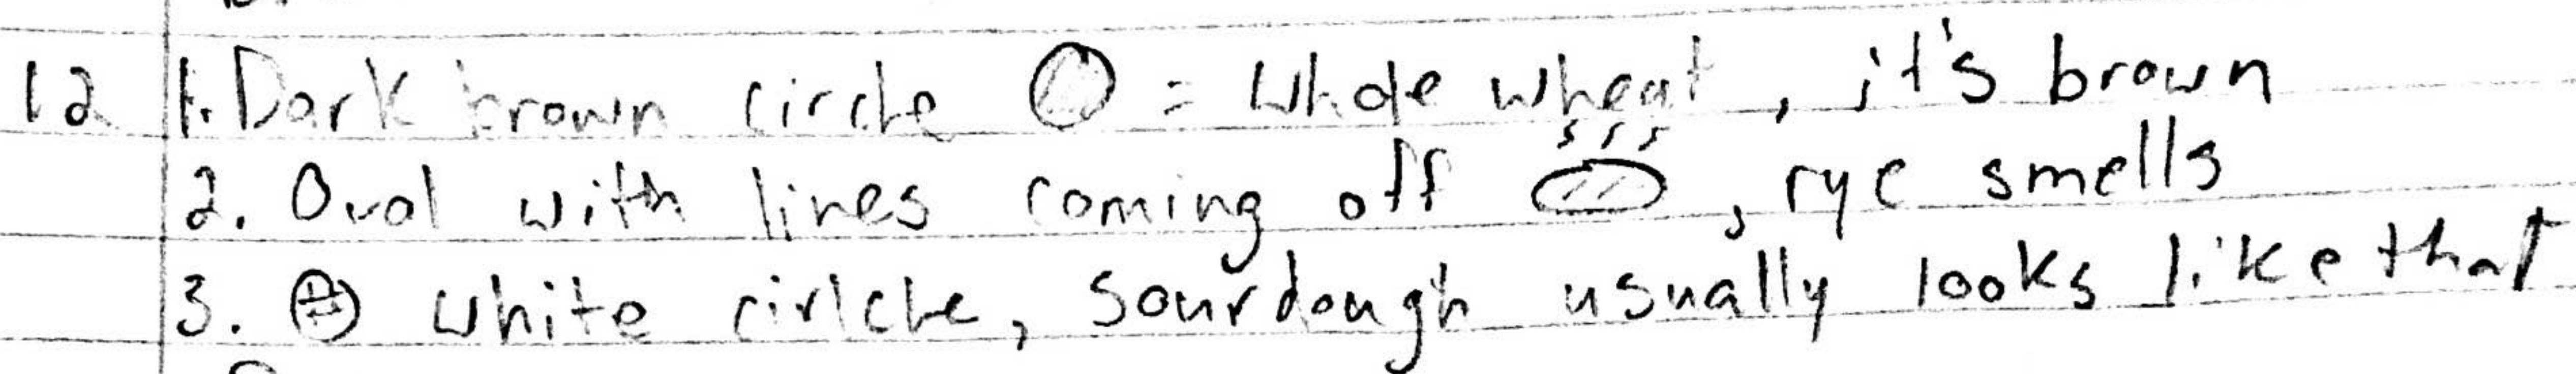 12 1. Dark brown circle = Whole wheat, it's brown
2. Oval with lines coming off , rye smells
3. white cirlcle, sourdough usually looks like that